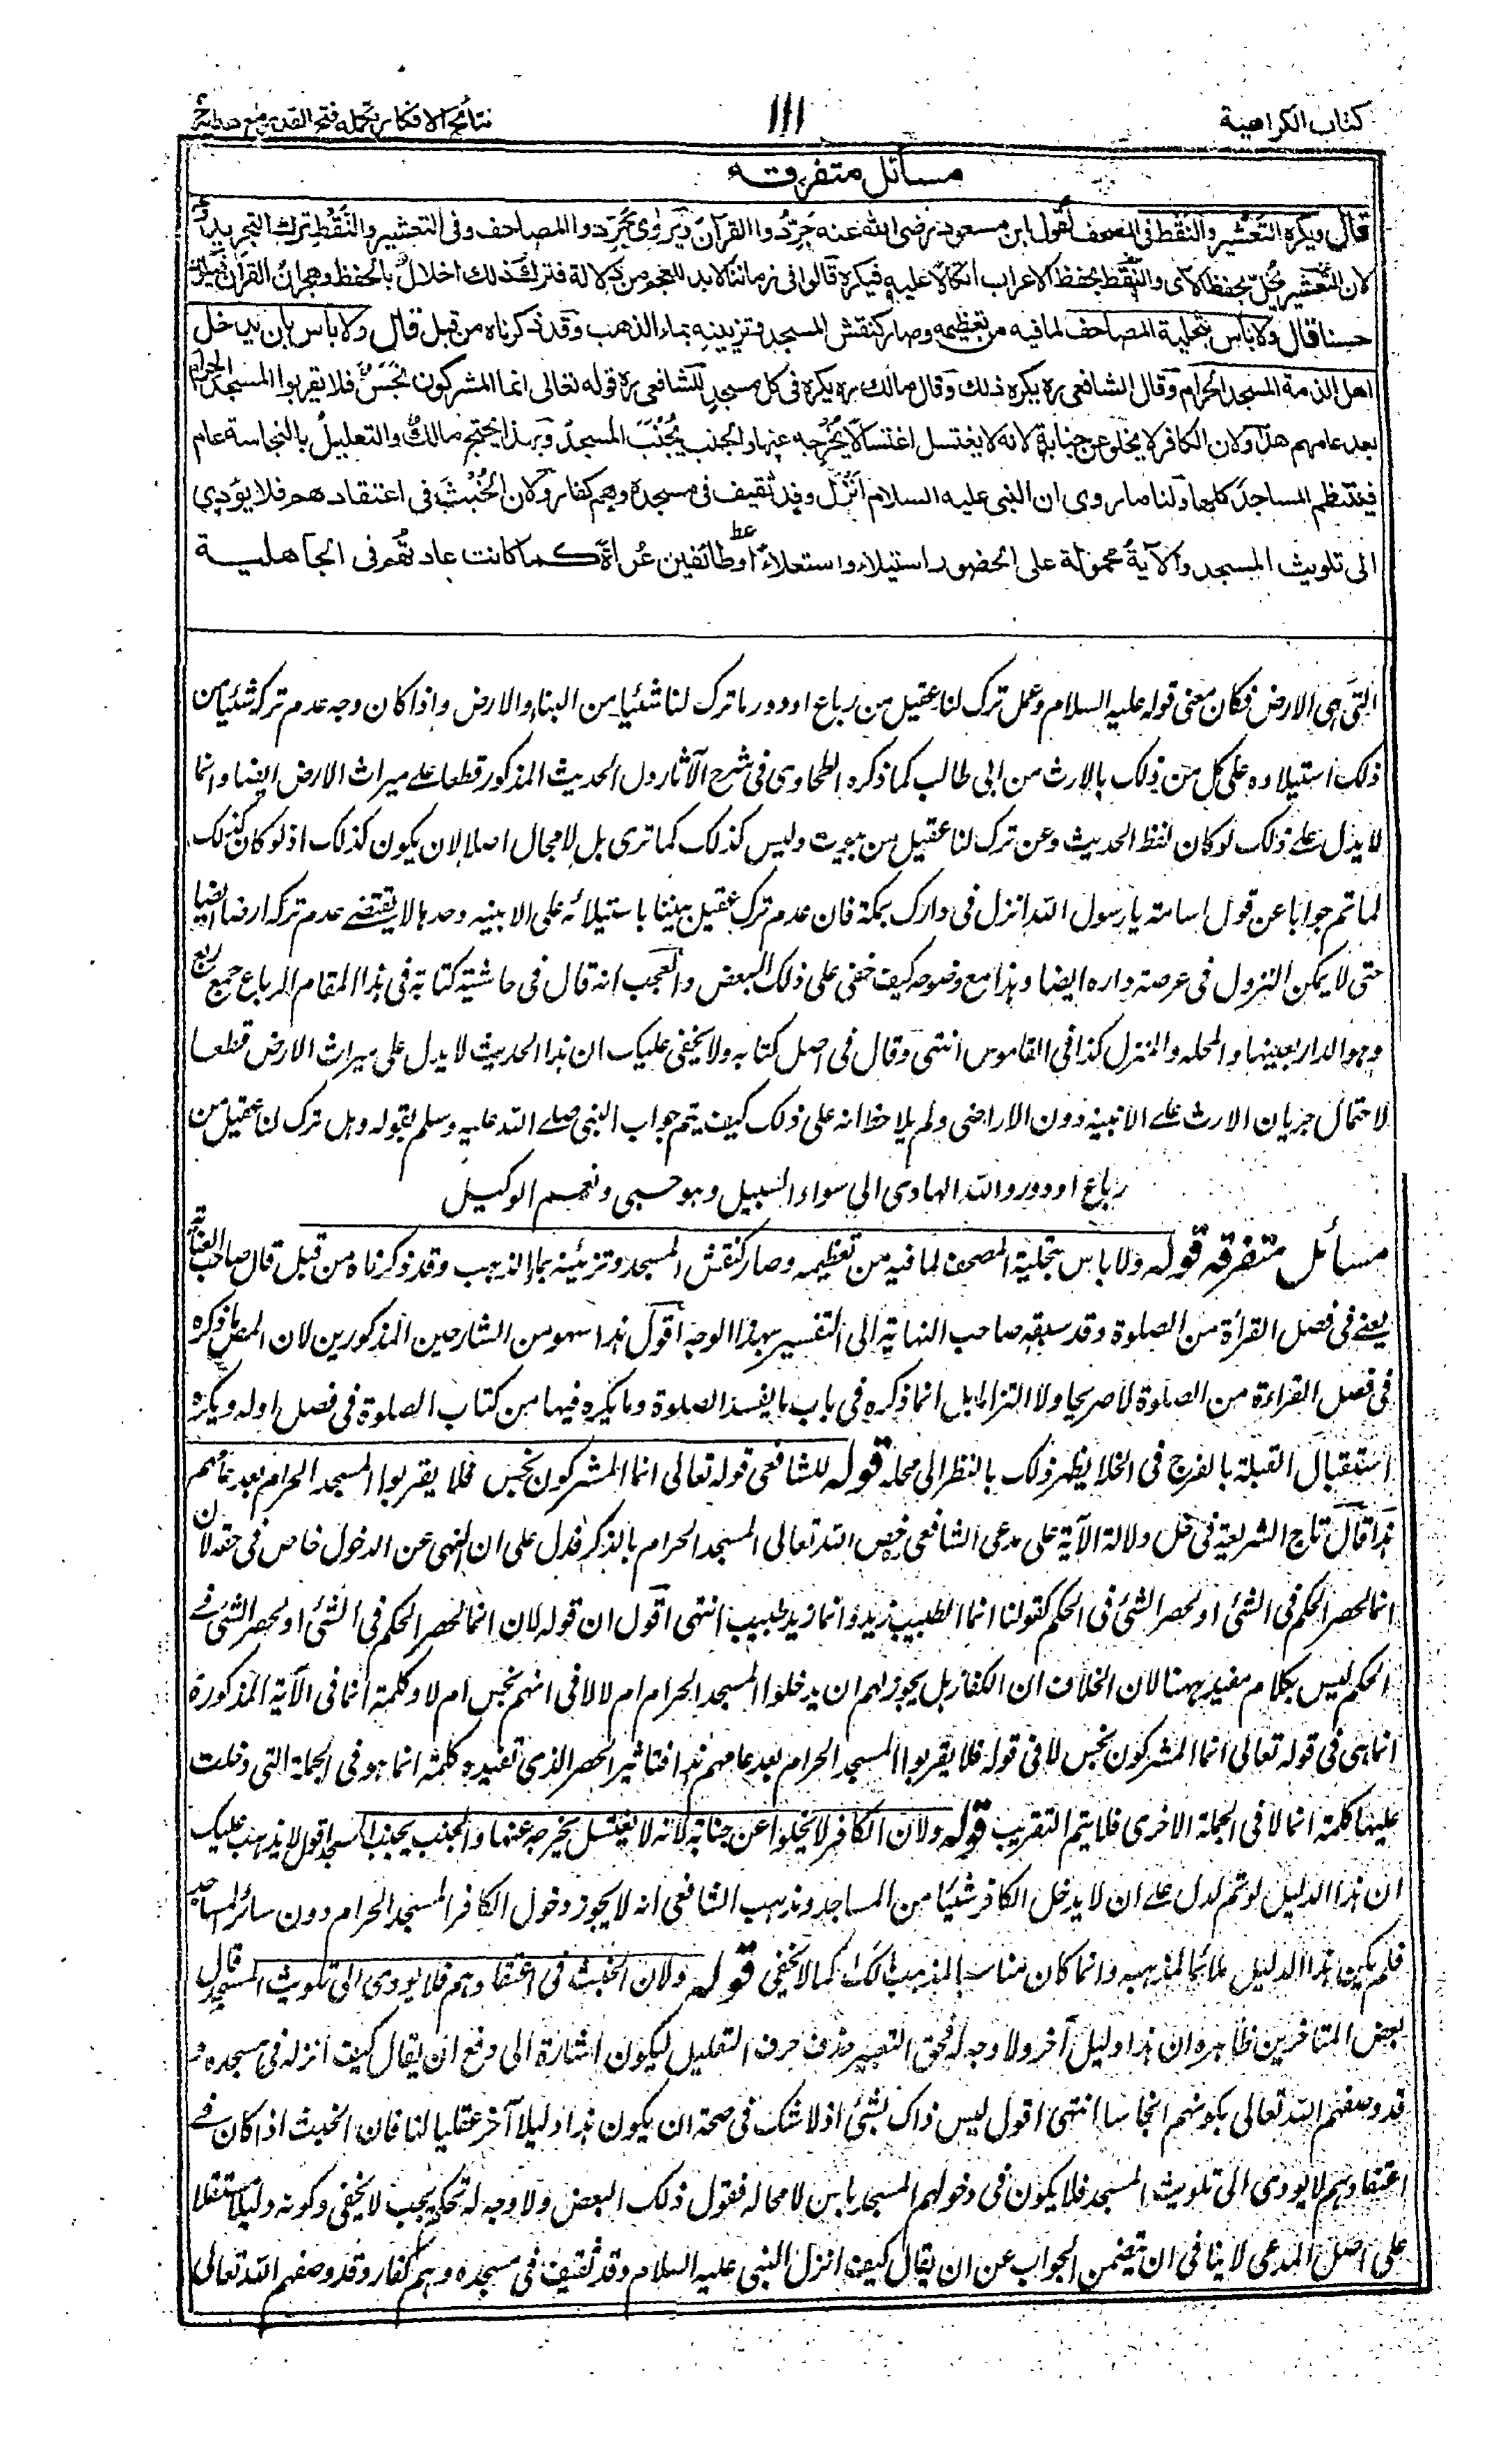 كتاب الكراهية
١١١
نتائج الافكار تكملة فتح القدير مع هداية
مسائل متفرقة
قال ويكره التعشير والنقط فى المصحف لقول ابن مسعود رضى الله عنه جَرِّدُوا القرآن ويُروى جَرِّدوا المصاحف وفى التعشير والنَّقْطِ ترك التجريد
لان التعشير يُخِلّ بحفظ الآى والنَّقط بحفظ الاعراب اتكالا عليه فيكره قالوا فى زماننا لابد للعجم من دلالة فترك ذلك اخلالٌ بالحفظ وهجرانُ القرآن فيكون
حسنا قال ولا باس بتحلية المصاحف لما فيه من تعظيمه وصار كنقش المسجد وتزيينه بماء الذهب وقد ذكرناه من قبل قال ولا باس بان يدخل
اهل الذمة المسجد الحرام وقال الشافعى ره يكره ذلك وقال مالك ره يكره فى كل مسجد للشافعى ره قوله تعالى انما المشركون نَجَسٌ فلا يقربوا المسجد الحرام
بعد عامهم هذا ولان الكافر لا يخلو عن جنابة لانه لا يغتسل اغتسالا يُخْرِجه عنها والجنب يُجَنَّبُ المسجدَ وبهذا يحتج مالكٌ والتعليلُ بالنجاسة عام
فينتظم المساجدَ كلها ولنا ما روى ان النبى عليه السلام اَنْزَلَ وفد ثقيف فى مسجده وهم كفار ولان الخُبْثَ فى اعتقادهم فلا يؤدي
الى تلويث المسجد والآيةُ محمولة على الحضور استيلاء واستعلاءً اوطائفين عُراةً كما كانت عادتُهُم فى الجاهلية
التى هى الارض فكان معنى قوله عليه السلام وهل ترك لنا عقيل من رباع او دور ما ترك لنا شئيا من البناء والارض واذا كان وجه عدم تركه شئيا من
ذلك استيلاده على كل من ذلك بالارث من ابى طالب كما ذكره الطحاوى فى شرح الآثار دل الحديث المذكور قطعا على ميراث الارض ايضا وانما
لا يدل على ذلك لو كان لفظ الحديث وعن ترك لنا عقيل من بيوت وليس كذلك كما ترى بل لا مجال اصلا لان يكون كذلك اذ لو كان كذلك
لما تم جوابا عن قول اسامة يا رسول الله انزل فى دارك بمكة فان عدم ترك عقيل بيتنا باستيلائه على الابنيه وحدها لا يقتضى عدم تركه ارضا ايضا
حتى لا يمكن النزول فى عرصة داره ايضا وهذا مع وضوحه كيف خفى على ذلك البعض والعجب انه قال فى حاشية كتابه فى هذا المقام الرباع جمع ربع
وهو الدار بعينها والمحله والمنزل كذا فى القاموس انتهى وقال فى اصل كتابه ولا يخفى عليك ان هذا الحديث لا يدل على ميراث الارض قطعا
لاحتمال جريان الارث على الابنية دون الاراضى ولم يلاحظ انه على ذلك كيف يتم جواب النبى صلى الله عليه وسلم بقوله وهل ترك لنا عقيل من
رباع او دور والله الهادى الى سواء السبيل وهو حسبى ونعم الوكيل
مسائل متفرقه قوله ولا باس بتحلية المصحف لما فيه من تعظيمه وصار كنقش المسجد وتزئينه بماء الذهب وقد ذكرناه من قبل قال صاحب العناية
يعنى فى فصل القرأة من الصلوة وقد سبقه صاحب النهاية الى التفسير بهذا الوجه اقول هذا سهو من الشارحين المذكورين لان المص ما ذكره
فى فصل القراءة من الصلوة لا صريحا ولا التزاما بل انما ذكره فى باب ما يفسد الصلوة وما يكره فيها من كتاب الصلوة فى فصل اوله ويكره
استقبال القبلة بالفرج فى الخلا يظهر ذلك بالنظر الى محله قوله للشافعى قوله تعالى انما المشركون نجس فلا يقربوا المسجد الحرام بعد عامهم
هذا قال تاج الشريعة فى حل دلالة الآية على مدعى الشافعى خص الله تعالى المسجد الحرام بالذكر فدل على ان النهى عن الدخول خاص فى حقه لان
انما لحصر الحكم فى الشئ او لحصر الشئ فى الحكم كقولنا انما الطبيب زيد وانما زيد طبيب انتهى اقول ان قوله لان انما لحصر الحكم فى الشئ او لحصر الشئ فى
الحكم ليس بكلام مفيد ههنا لان الخلاف ان الكفار هل يجوز لهم ان يدخلوا المسجد الحرام ام لا لا فى انهم نجس ام لا وكلمة انما فى الآية المذكورة
انما هى فى قوله تعالى انما المشركون نجس لا فى قوله فلا يقربوا المسجد الحرام بعد عامهم هذا فتاثير الحصر الذى تفيده كلمة انما هو فى الجملة التى دخلت
عليها كلمة انما لا فى الجملة الاخرى فلا يتم التقريب قوله ولان الكافر لا يخلوا عن جنابة لانه لا يغتسل يخرجه عنها والجنب يجنب المسجد اقول لا يذهب عليك
ان هذا الدليل لو تم لدل على ان لا يدخل الكافر شئيا من المساجد ومذهب الشافعى انه لا يجوز دخول الكافر المسجد الحرام دون سائر المساجد
فلم يكن هذا الدليل ملائما لمذهبه وانما كان مناسبا لمذهب مالك كما لا يخفى قوله ولان الخبث فى اعتقادهم فلا يودى الى تلويث المسجد قال
بعض المتاخرين ظاهره ان هذا دليل آخر ولا وجه له فحق التعبير حذف حرف التعليل ليكون اشارة الى دفع ان يقال كيف انزله فى مسجده
قد وصفهم الله تعالى بكونهم انجاسا انتهى اقول ليس ذاك بشئ اذ لا شك فى صحة ان يكون هذا دليلا آخر عقليا لنا فان الخبث اذا كان فى
اعتقادهم لا يودى الى تلويث المسجد فلا يكون فى دخولهم المسجد باس لا محاله فقول ذلك البعض ولا وجه له تحكم بحت لا يخفى وكونه دليلا مستقلا
على اصل المدعى لا ينافى ان يتضمن الجواب عن ان يقال كيف انزل النبى عليه السلام وفد ثقيف فى مسجده وهم كفار وقد وصفهم الله تعالى